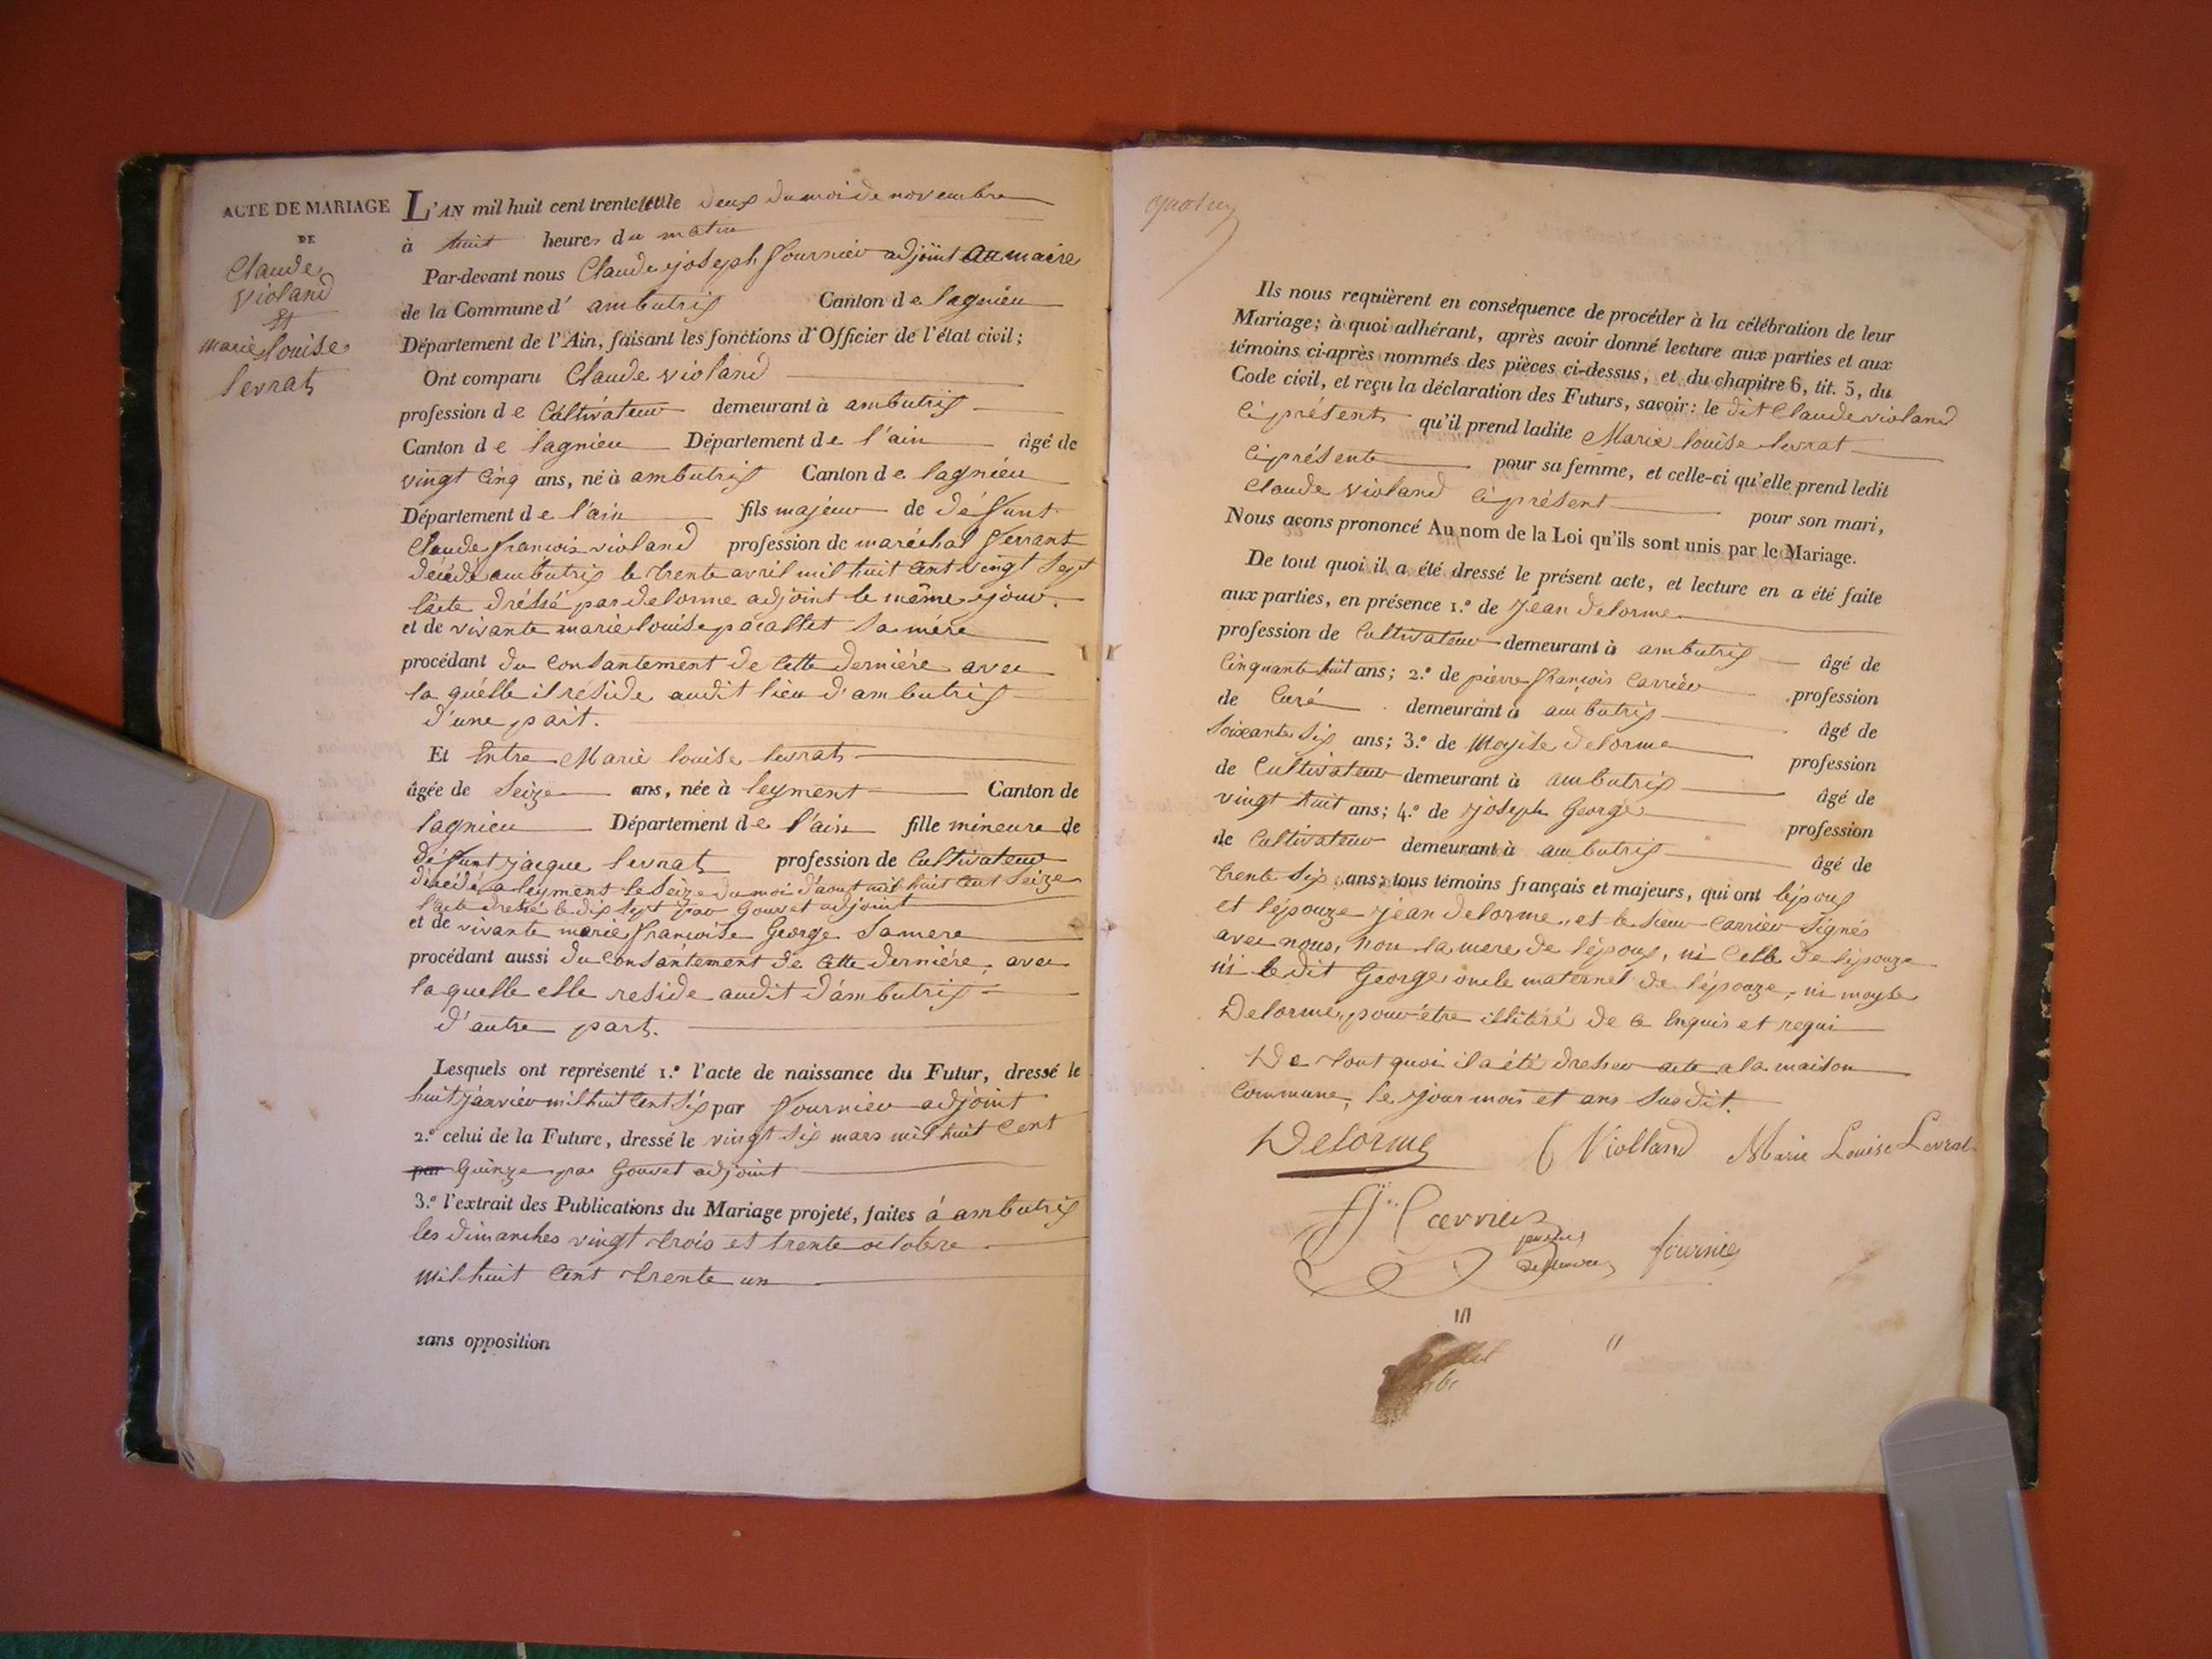 ACTE DE MARIAGE
DE
Claude
violand
Et
marie louise
levrat
L'AN mil huit cent trente le deux du moi de novembre
à huit heures du matin
Par-devant nous Claude joseph fournier adjoint au maire
de la Commune d' ambutrix Canton de lagnieu
Département de l'Ain, faisant les fonctions d'Officier de l'état civil;
Ont comparu Claude violand
profession de Cultivateur demeurant à ambutrix
Canton de lagnieu Département de l'ain âgé de
vingt Cinq ans, né à ambutrix Canton de lagnieu
Département de l'ain fils majeur de défunt
Claude francois violand profession de maréchal ferrant
décédé ambutrix le trente avril mil huit Cent vingt Sept
l'acte dréssé par delorme adjoint le même jour
et de vivante marie louise pacallet Sa mére
procédant du Consantement de Cette derniére avec
la quélle il réside audit lieu d'ambutrix
d'une part.
Et Entre Marie louise levrat
âgée de Seize ans, née à leyment Canton de
lagnieu Département de l'ain fille mineure de
défunt jacque levrat profession de Cultivateur
décédé a leyment le Seize du moi d'aout mil huit Cent Seize
l'acte dressé le dix Sept par Gouvet adjoint
et de vivante marie francoise George Sa mere
procédant aussi du Consantement de Cette derniére, avec
laquelle elle reside audit d'ambutrix
d'autre part.
Lesquels ont représenté 1.° l'acte de naissance du Futur, dressé le
huit janvier mil huit Cent Six par fournier adjoint
2.° celui de la Future, dressé le vingt Six mars mil huit Cent
par Quinze par Gouvet adjoint
3.° l'extrait des Publications du Mariage projeté, faites á ambutrix
les dimanches vingt trois et trente octobre
mil huit Cent trente un
sans opposition
Ils nous requièrent en conséquence de procéder à la célébration de leur
Mariage; à quoi adhérant, après avoir donné lecture aux parties et aux
témoins ci-après nommés des pièces ci-dessus, et du chapitre 6, tit. 5, du
Code civil, et reçu la déclaration des Futurs, savoir: le dit Claude violand
Ci présent qu'il prend ladite Marie louise levrat
Ci présente pour sa femme, et celle-ci qu'elle prend ledit
Claude violand Ci présent pour son mari,
Nous avons prononcé Au nom de la Loi qu'ils sont unis par le Mariage.
De tout quoi il a été dressé le présent acte, et lecture en a été faite
aux parties, en présence 1.° de jean delorme
profession de Cultivateur demeurant à ambutrix âgé de
Cinquante huit ans; 2.° de pierre francois Carrier profession
de Curé demeurant à ambutrix âgé de
Soixante Six ans; 3.° de Moyse delorme profession
de Cultivateur demeurant à ambutrix âgé de
vingt huit ans; 4.° de joseph George profession
de Cultivateur demeurant à ambutrix âgé de
trente Six ans; tous témoins français et majeurs, qui ont l'époux
et l'épouze jean delorme, et le Sieur Carrier Signés
avec nous, non la mere de l'époux, ni Celle de l'épouze
ni le dit George oncle maternel de l'épouze, ni moyse
Delorme, pour être illitéré de Ce Enquis et requi
De tout quoi il a été dresser acte a la maison
Commune, le jour mois et ans Susdit.
Delorme C Violland Marie Louise Levrat
Carrier
fournier